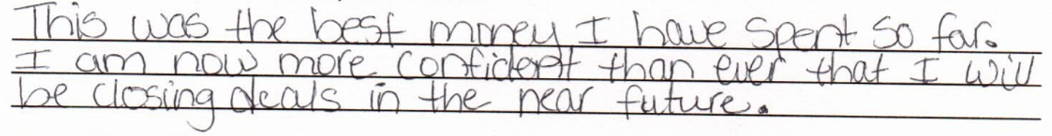 This was the best money I have spent so far.
I am now more confident than ever that I will
be closing deals in the near future.